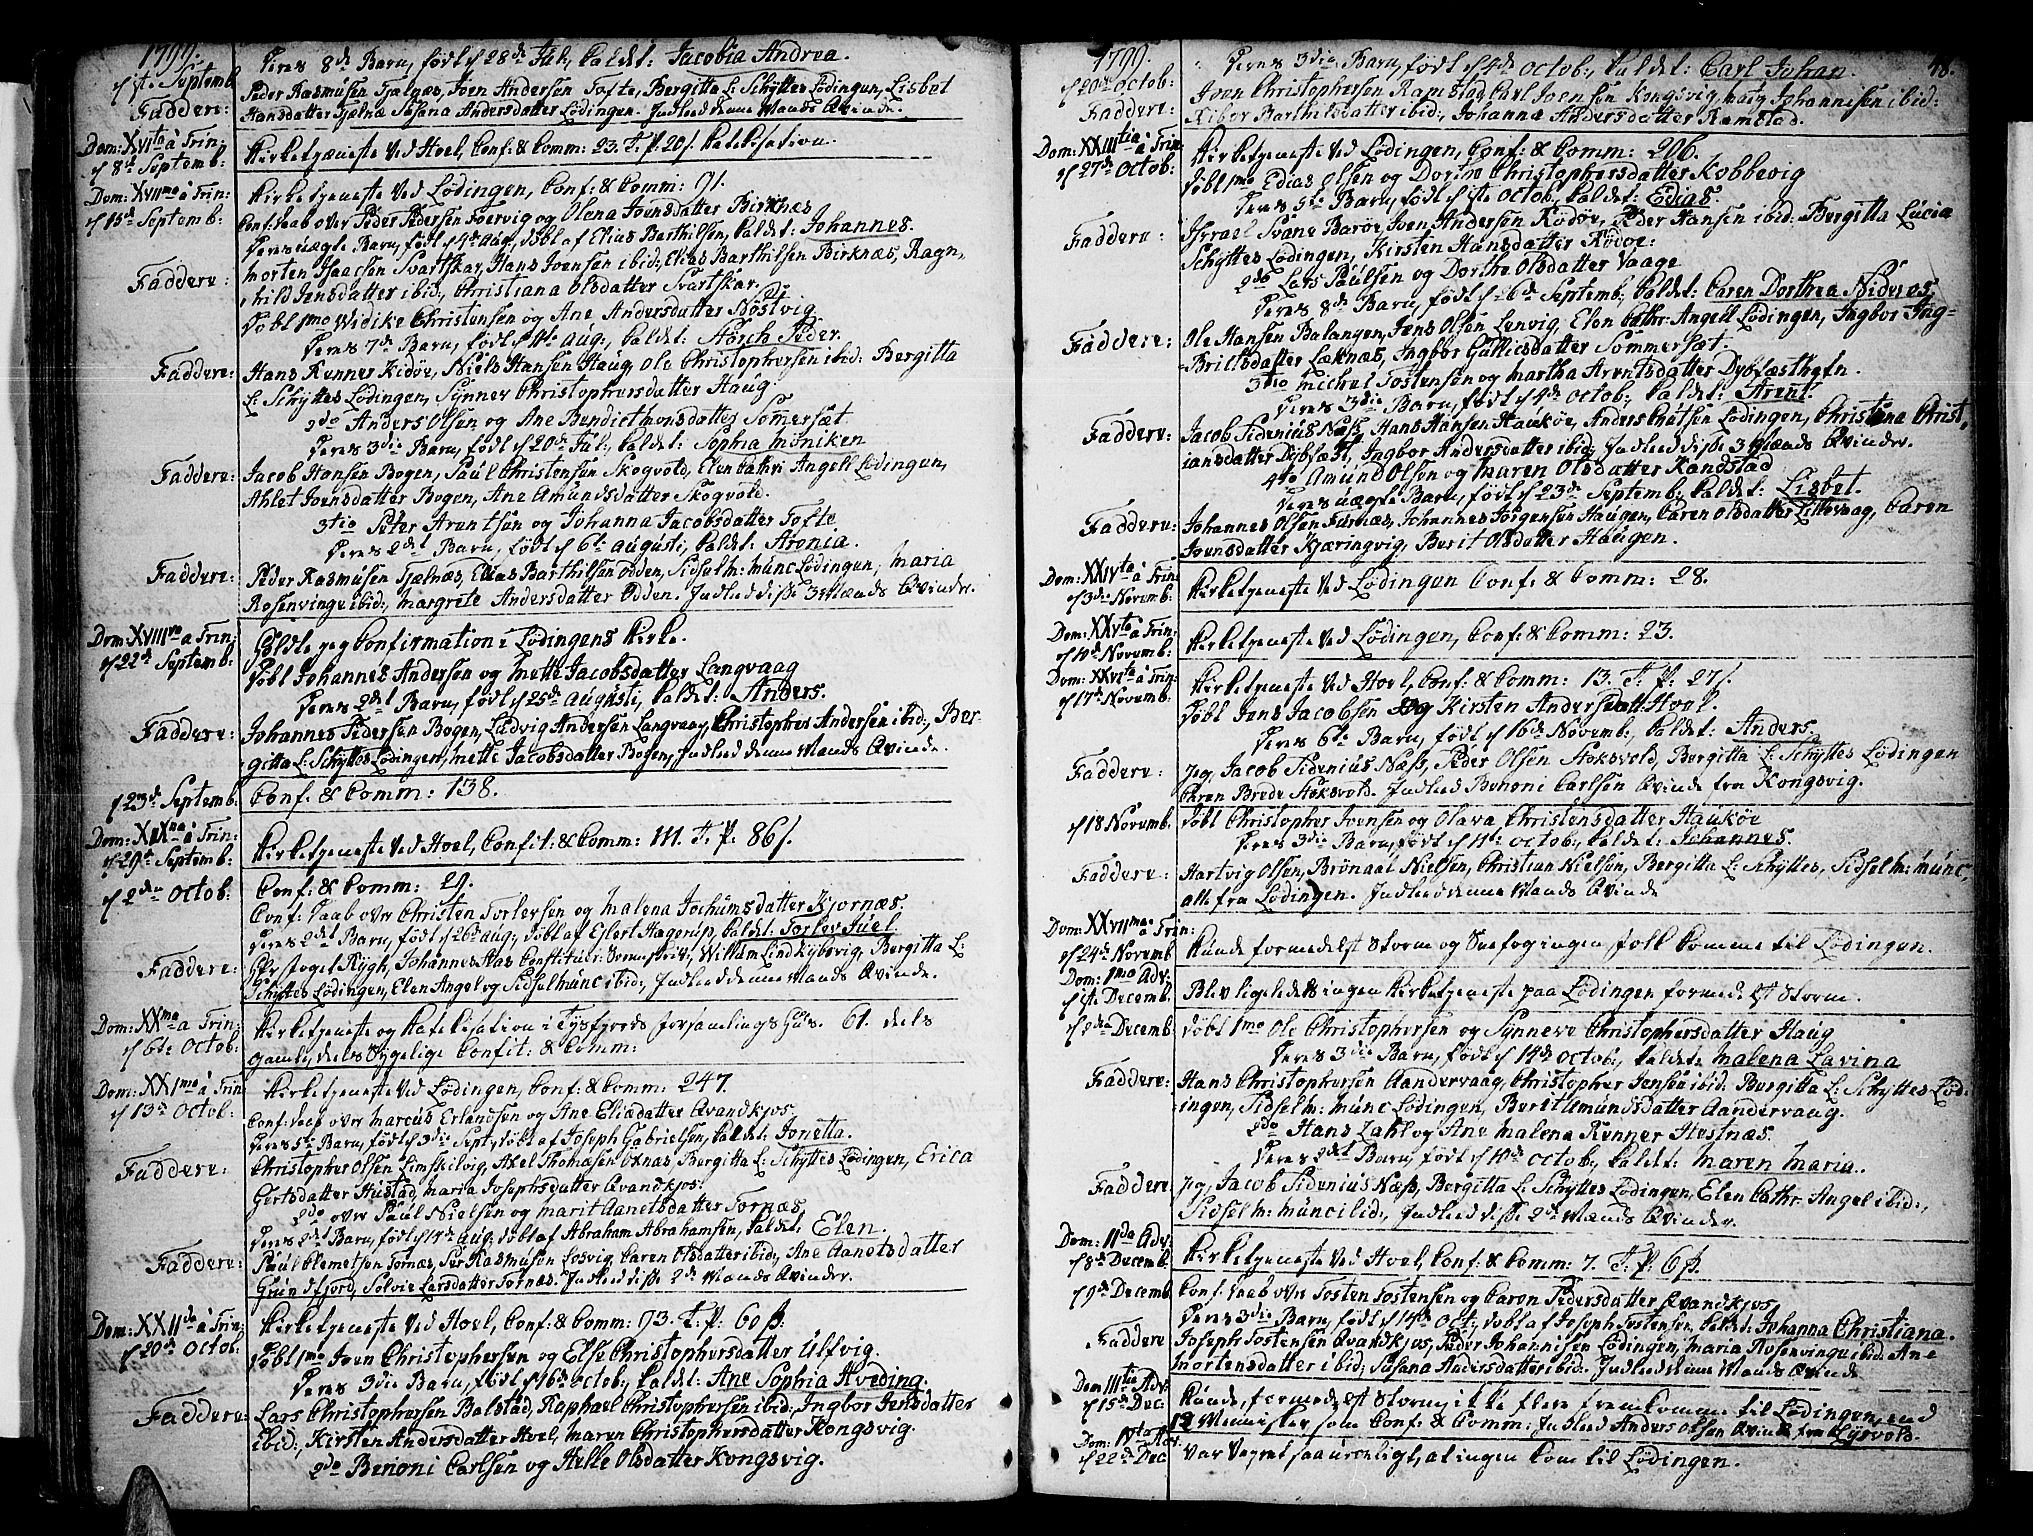 1799.
d 1ste Septemb
Deres 8de Barn, født d 28de Jul, kaldet: Jacobia Andrea.
Faddere:
Peder Rasmusen Tjælnæs, Joen Andersen Tofte, Bergitta L: Schyttes Lødingen, Lisbet
Hansdatter Tjælnæs Susana Andersdatter Lødingen. Indled denne Mands Qvinde.
Dom: XVIta à Trin:
d 8de Septemb:
Kirketjeneste ved Hoel, Conf: & Comm: 23. T. P. 20 s. Catechisation.
Dom: XVIIma à Trin:
d 15de Septemb:
Kirketjeneste ved Lødingen, Conf: & Comm: 91.
Conf: Daab over Peder Pedersen Foervig og Olena Joensdatter Birknæs
Deres uægte Barn, født d 4de Aug, døbt af Elias Barthilsen, kaldet: Johannes.
Faddere:
Morten Isaacsen Svartskar, Hans Joensen ibid:, Elias Barthilsen Birknæs, Ragn,
hild Jensdatter ibid:, Christiana Olsdatter Svartskar.
Døbt 1mo Widike Christensen og Ane Andersdatter Nøstvig
Deres 7de Barn, født d 11te Aug:, kaldet: Storch Peder.
Faddere:
Hans Renner Kidøe, Niels Hansen Haug, Ole Christophersen ibid: Bergitta
L: Schyttes Lødingen, Synnev Christophersdatter Haug
2do Anders Olsen og Ane Bendicthmonsdatter Somersæt
Deres 3die Barn, født d 20de Jul: kaldet: Sophia Møniken
Faddere:
Jacob Hansen Bogen, Paul Christensen Skogvold, Elen Cathri Angell Lødingen,
Ahlet Joensdatter Bogen, Ane Amundsdatter Skogvold.
3tio Peter Arentsen og Johanna Jacobsdatter Tofte
Deres 2det Barn, født d 6te Augusti, kaldet: Aronia.
Faddere:
Peder Rasmusen Tjælnæs, Elias Barthilsen Odden, Sidsel M: Munc Lødingen, Maria
Rosenvinge ibid:, Margrete Andersdatter Odden. Indled disse 3 Mænds Qvinder.
Dom: XVIIIva a Trin:
d 22de Septemb:
Holdte jeg Confirmation i Lødingens Kirke.
Døbt Johannes Andersen og Mette Jacobsdatter Langvaag
Deres 2det Barn, født d 25de Augusti, kaldet: Anders.
Faddere:
Johannes Pedersen Bogen, Ludvig Andersen Langvaag, Christopher Andersen ibid:, Ber-
gitta L: Schyttes Lødingen, Mette Jacobsdatter Bogen, Indled denne Mands Qvinde.
d 23de Septemb:
Conf: & Comm: 138.
Dom: XIXna à Trin:
d 29de Septemb:
Kirketjeneste ved Hoel, Confit: & Comm: 111. T. P. 86 s.
d 2den Octob:
Conf: & Comm: 29.
Conf: Daab over Christen Torlersen og Malena Jochumsdatter Kjornæs
Deres 2det Barn, født d 26de Aug:, døbt af Ejlert Hagerup, kaldet: Torlev Juel
Faddere:
Hr: Foged Rygh, Johannes Aas Constitueir: Sorenskriver, Willum Lind Kjybsvig, Bergitta L:
Schyttes Lødingen, Elen Angel og Sidsel Munc ibid:, Indled denne Mands Qvinde.
Dom: XXma a Trin:
d 6te Octob:
Kirketjeneste og Catechisation i Tysfjords Forsamlings Huus. 61. deels
gamle, deels Sygelige Confit: & Comm:
Dom: XXIma à Trin
d 13de Octob:
Kirketjeneste ved Lødingen, Conf: & Comm: 247.
Conf: Daab over Marcus Erlandsen og Ane Eliædatter Qvandkjos
Deres 5te Barn, født d 3die Sept:, døbt af Joseph Gabrielsen, kaldet: Jonetta.
Faddere:
Christopher Olsen Limskilvig, Axel Thomæsen Oxnæs, Bergitta L: Schyttes Lødingen, Erica
Gertsdatter Hustad, Maria Josephsdatter Qvandkjos:
2do over Paul Nielsen og Marit Aanetsdatter Tornæs
Deres 2det Barn, født d 14de Aug: døbt af Abraham Abrahamsen, kaldet: Elen.
Faddere:
Paul Clemetsen Tornæs, Per Rasmusen Losvig, Caren Olsdatter ibid:, Ane Aanetsdatter
Grundfjord, Solvie Larsdatter Tornæs. Indled disse 2de Mænds Qvinder.
Dom: XXIIda à Trin:
d 20de Octob:
Kirketjeneste ved Hoel, Conf: & Comm: 73. T: P: 60 s.
Døbt 1mo Joen Christophersen og Else Christophersdatter Ulfvig.
Deres 3die Barn, født d 16de Octob:, kaldet: Ane Sophia Hveding.
Faddere:
Lars Christophersen Balstad, Raphael Christophersen ibid:, Ingbor Jensdatter
ibid:, Kirsten Andersdatter Hoel, Maren Christophersdatter Kongsvig.
2do Benoni Carlsen og Helle Olsdatter Kongsvig.
1799.
48.
d 20de Octob:
Deres 3die Barn, født d 4de Octob:, kaldet: Carl Johan.
Faddere:
Joen Christophersen Ramstad, Carl Joensen Kongsvig, Mats Johannisen ibid:
Ribor Barthildsdatter ibid:, Johanna Andersdatter Ramstad.
Dom: XXIIItia à Trin
d 27de Octob:
Kirketjeneste ved Lødingen, Conf: & Comm: 206.
Døbt 1mo Edias Olsen og Dorthe Christophersdatter Kobbevig
Deres 5te Barn, født d 1ste Octob, kaldet: Edias.
Faddere:
Israel Svane Barøe, Joen Andersen Rødøe, Peder Hansen ibid. Bergitta Lucia
Schyttes Lødingen, Kirsten Hansdatter Rødøe:
2do Lars Paulsen og Dorthe Olsdatter Vaage
Deres 8de Barn, født d 26de Septemb:, kaldet: Caren Dorthea Nideros
Faddere:
Ole Hansen Balangen, Jens Olsen Lenvig, Elen Cathr: Angell Lødingen, Ingbor Ing-
-Brittsdatter Læknæs, Ingbor Gullicsdatter Sommersæt.
3tio Michel Tostensen og Martha Arentsdatter Dybfæsthøfn.
Deres 3die Barn, født d 4de Octob:, kaldet: Arent.
Faddere:
Jacob Sidenius Næss, Hans Hansen Haukøe, Anders Knutsen Lødingen, Christiana Christ,
iansdatter Dybfæst, Ingbor Andersdatter ibid:, Indled disse 3 Mænds Qvinder.
4to Amund Olsen og Maren Olsdatter Kandstad
Deres uægte Barn, født d 23de Septemb:, kaldet: Lisbet.
Faddere:
Johannes Olsen Furnæs, Johannes Jørgensen Haugen, Caren Olsdatter Lillevaag, Caren
Joensdatter Kjæringvig, Berit Olsdatter Haugen.
Dom: XXIVta à Trin:
d 3die Novemb:
Kirketjeneste ved Lødingen Conf: & Comm: 28.
Dom: XXVta à Trin:
d 10de Novemb:
Kirketjeneste ved Lødingen, Conf: & Comm: 23.
Dom: XXVIta à Trin:
d 17de Novemb:
Kirketjeneste ved Hoel, Conf: & Comm: 13. T. P: 27 s.
Døbt Jens Jacobsen og Kirsten Andersdatt: Hoel.
Deres 6te Barn, født d 16de Novemb:, kaldet: Anders.
Faddere:
Jeg, Jacob Sidenius Næss, Peder Olsen Stoksvold, Bergitta L: Schyttes Lødingen
Ehren Brede Stoksvold. Indled Benoni Carlsen Qvinde fra Kongsvig.
d 18 Novemb:
Døbt Christopher Joensen og Olava Christensdatter Haukøe
Deres 3die Barn, født d 11te Octob:, kaldet: Johannes.
Faddere:
Hartvig Olsen, Brønaal Nielsen, Christian Nielsen, Bergitta L: Schyttes, Sidsel M: Munc,
alle fra Lødingen. Indled denne Mands Qvinde
Dom: XXVIIma à Trin:
d 24de Novemb
Kunde formedelst Storm og Sneefog ingen Folk komme til Lødingen.
Dom: 1ma Adv:
d 1ste Decemb:
Blev ligeledes ingen Kirketjeneste paa Lødingen formedelst Storm.
d 2den Decemb:
Døbt 1mo Ole Christophersen og Synneve Christophersdatter Haug
Deres 3die Barn, født d 14de Octob:, kaldet: Malena Lavina
Faddere:
Hans Christophersen Aandervaag, Christopher Jensen ibid: Bergitta L: Schyttes Lød:
ingen, Sidsel M: Munc Lødingen, Berit Amundsdatter Aandervaag.
2do Hans Lahl og Ane Malena Renner Hestnæs.
Deres 2det Barn, født d 10de Octob:, kaldet: Maren Maria.
Faddere
Jeg, Jacob Sidenius Næss, Bergitta L: Schyttes Lødingen, Elen Cathr: Angel ibid:,
Sidsel M: Munc ibid:, Indled disse 2de Mænds Qvinder.
Dom: IIda Adv:
d 8de Decemb:
Kirketjeneste ved Hoel, Conf: & Comm: 7. T: P: 6 s.
d 9de Decemb
Conf: Daab over Tosten Tostensen og Caren Pedersdatter Qvandkjos
Deres 3die Barn, født d 14de Oct:, døbt af Joseph Tostensen, kaldet: Johanna Christiana.
Faddere
Joseph Tostensen Qvandkjos, Peder Johannisen Lødingen, Maria Rosenvinge ibid: Ane
Mortensdatter ibid:, Susana Andersdatter ibid: Indled denne Mands Qvinde
Dom IIItia Adv:
d 15de Dec:
Kunde, formedelst Storm, ikke flere fremkomme til Lødingen, end
12 Mennisker som Conf: & Comm: Indled Anders Olsen Qvinde fra Kysvold.
Dom: IVta Adv:
d 22de Dec
Var Vejret saa uroligt, at ingen kom til Lødingen.